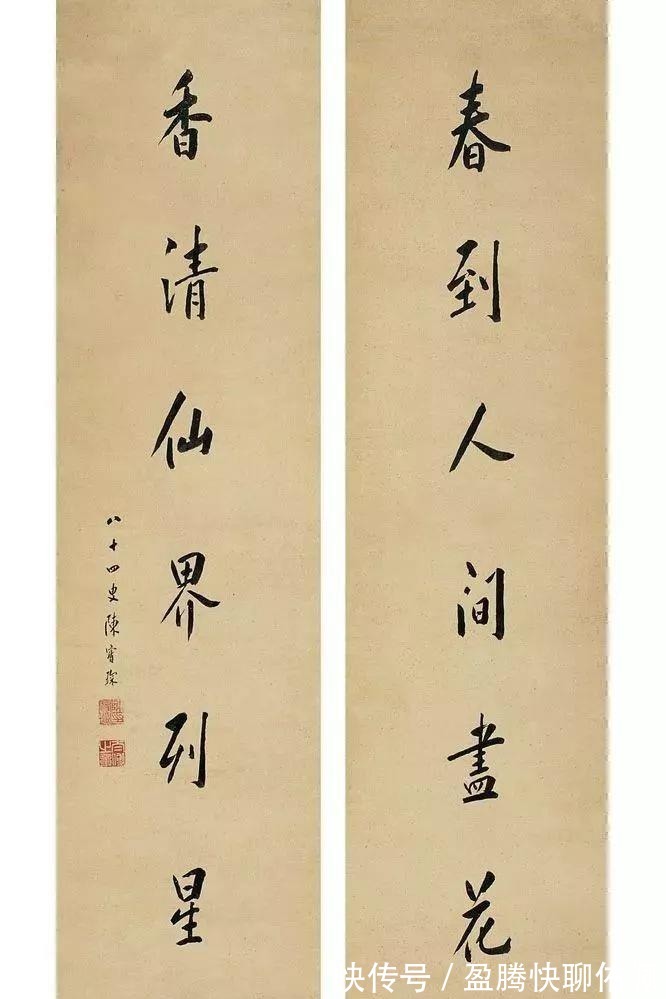 春到人间盡花
香清仙界列星
八十四叟陳寶琛
快传号 / 盈腾快聊体